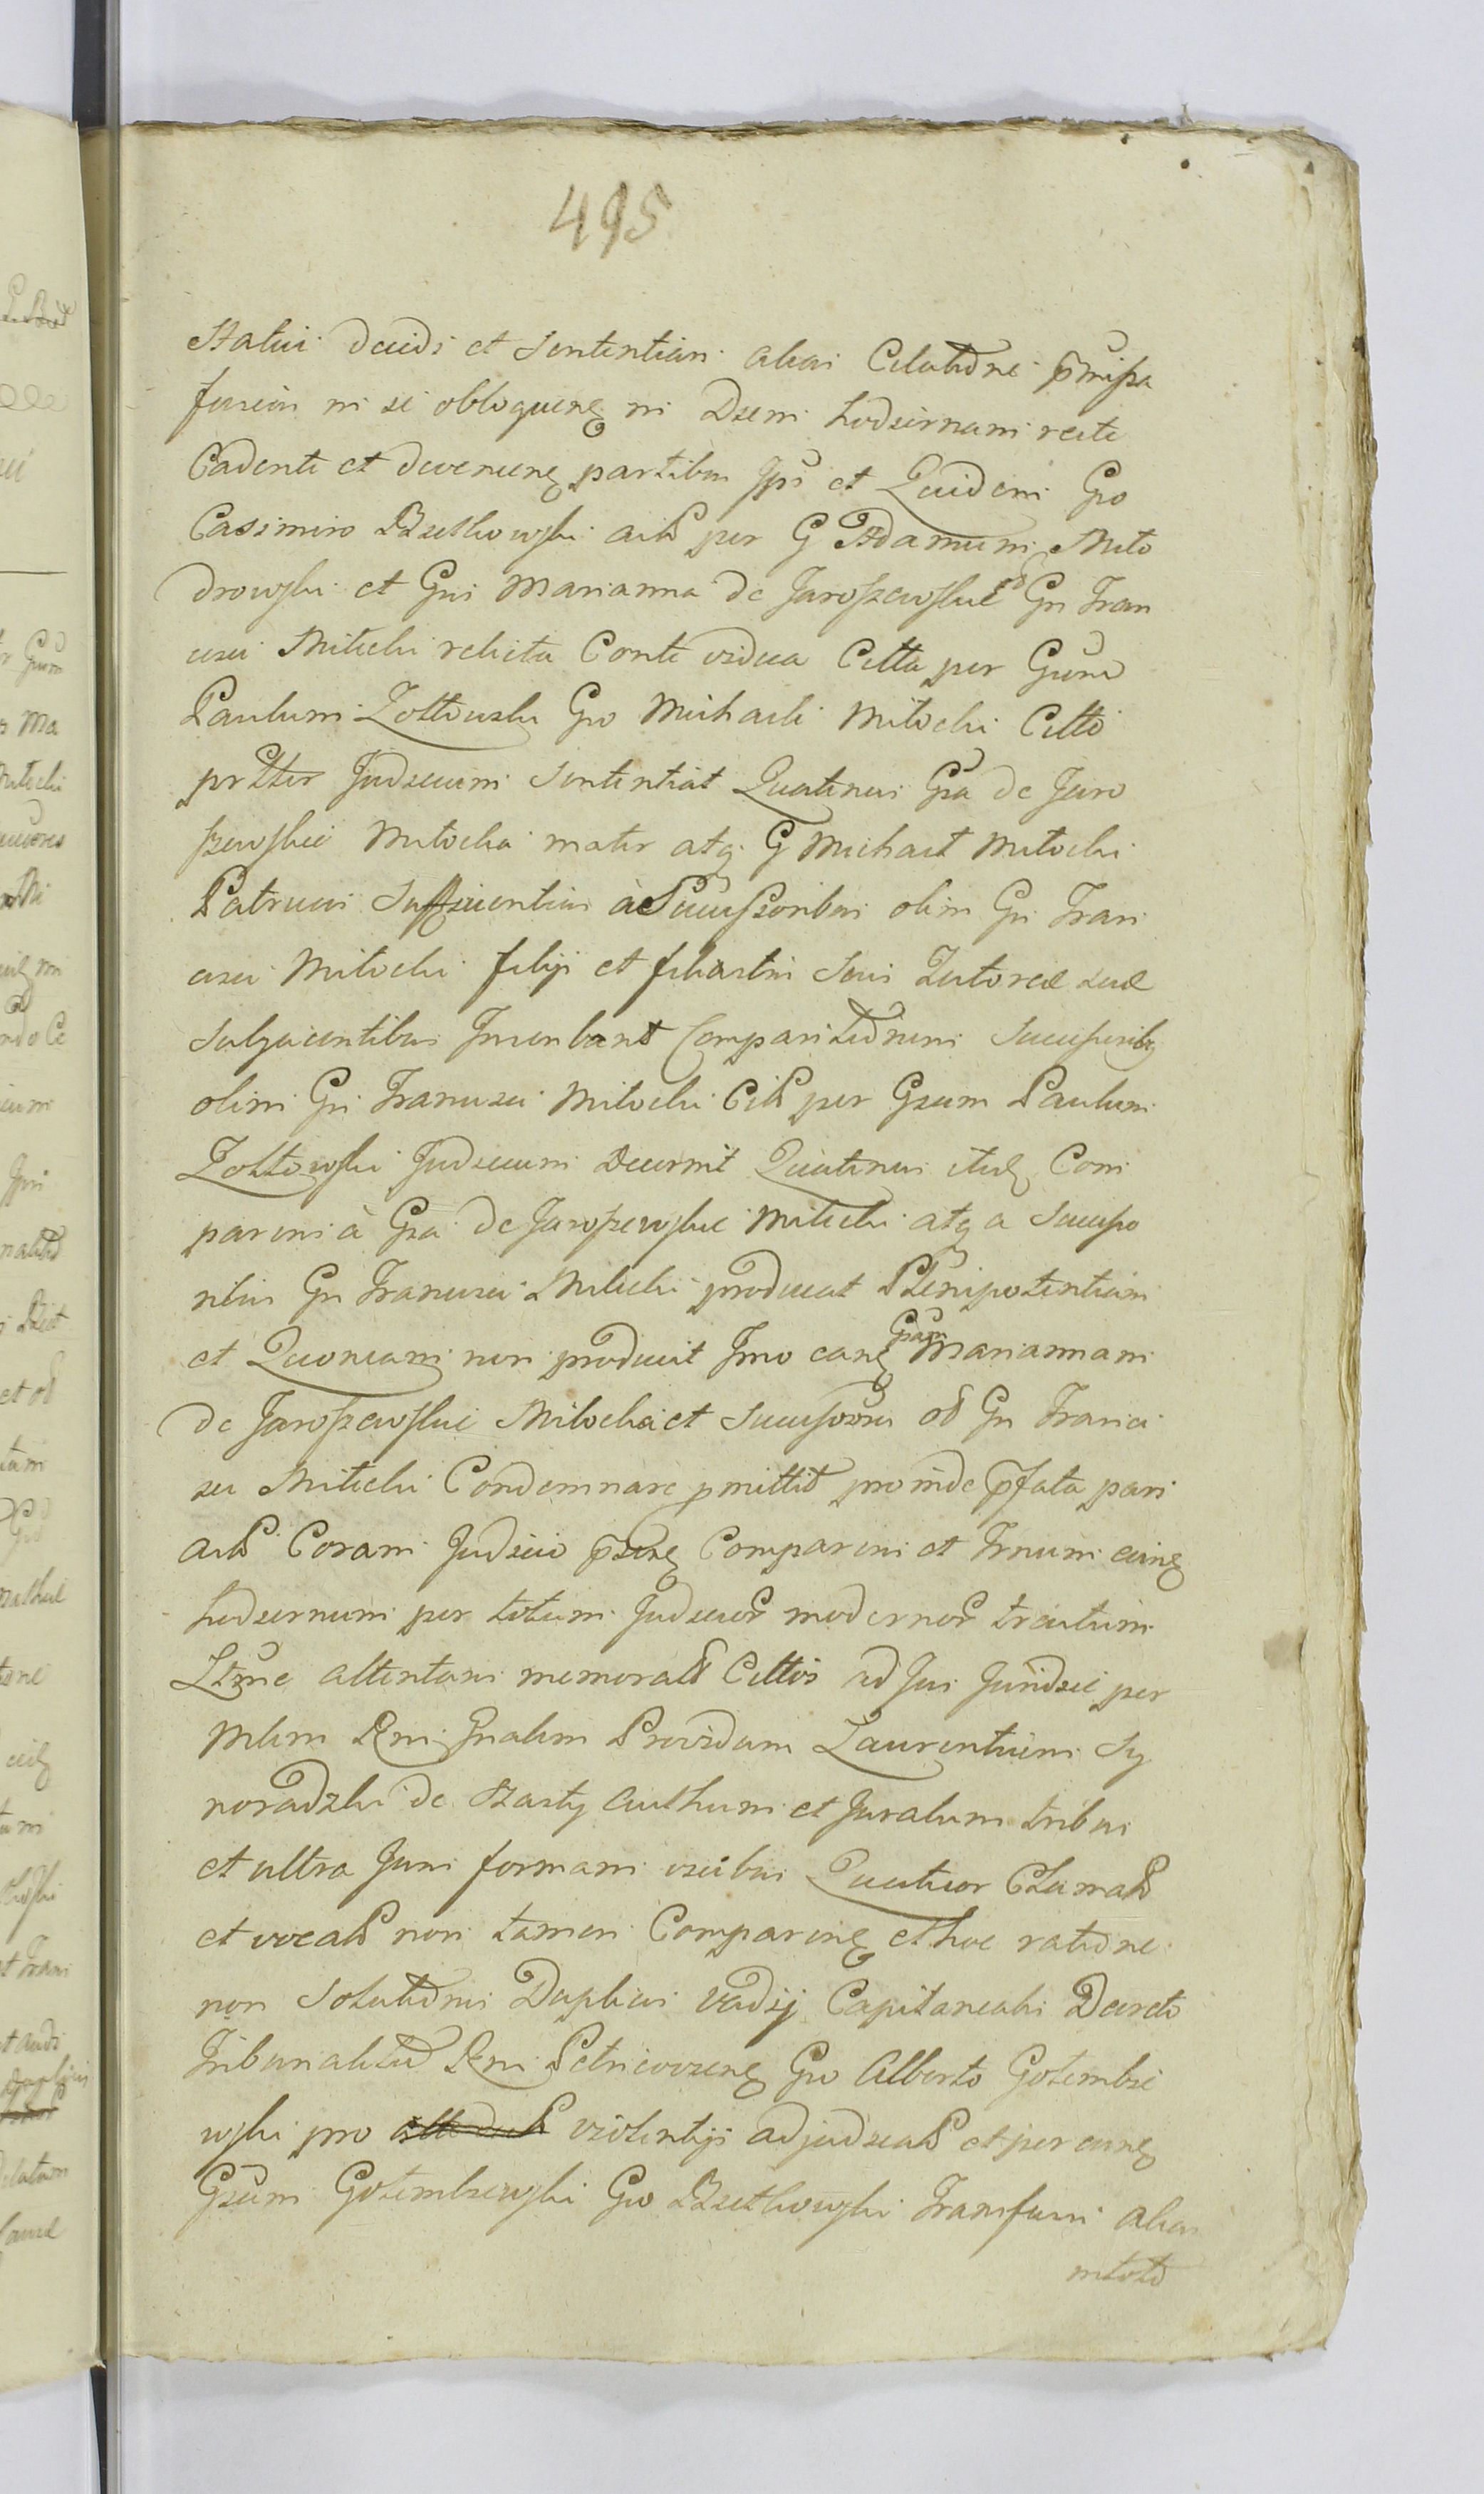 495
Statui decidi et sententiari alias Citatione pmissa
fusius in se obloquen in Diem hodiernam recte
Cadente et devenien partibus Ipsis et Quidem Gso
Casimiro Rzetkowski acts per G Adamum Mito
drowski et Gsi Marianna de Jaroszewskie od Gsi Fran
cisci Miticki relicta Conte vidua Citta per Gsum
Paulum Zottowski Gso Michaeli Mitocki Citto
prtter Judicium Sententiat Quatenus Gsa de Jaro
szewskie Mitocka mater atq G Michael Mitocki
Patruus Sufficientius à Successoribus olim Gsi Fran
cisci Mitocki filij et filiastri sui Tutoreae suae
Subjacentibus Inscribant Comparitionem Successoribq
olim Gsi Francisci Mitocki Cits per Gsum Paulum
Zottowski Judicium Decernit Quatenus itid Com
parens à Gsa de Jaroszewskie Miticki atq a Successo
ribus Gsi Francisci Miticki producat Plenipotentiam
et Quoniam non producit Imo ean Gsam Mariannam
de Jaroszewskie Mitocka et Successores od Gsi Franci
sci Miticki Condemnare pmittit proinde pfata pars
acts Coram Judicio psen Comparens et Trnum eun
hodiernum per totum Judicior modernor tractum
Ltme attentans memorats Cittos ad Jus Juridice per
Mlem Rni Gnalem Providum Laurentium Sy
noradzki de Szarty authum et Juratum tribus
et ultra Juris formam vicibus Quatuor Clamats
et vocats non tamen Comparen et hoc ratione
non Solutionis Duplicis vadij Capitanealis Decreto
Tribunalitio Rni Petricovien Gso Alberto Gotembie
wski pro violentijs adjudicats et per eun
Gsum Gotembiewski Gso Rzetkowski Transfusi alias
intoto